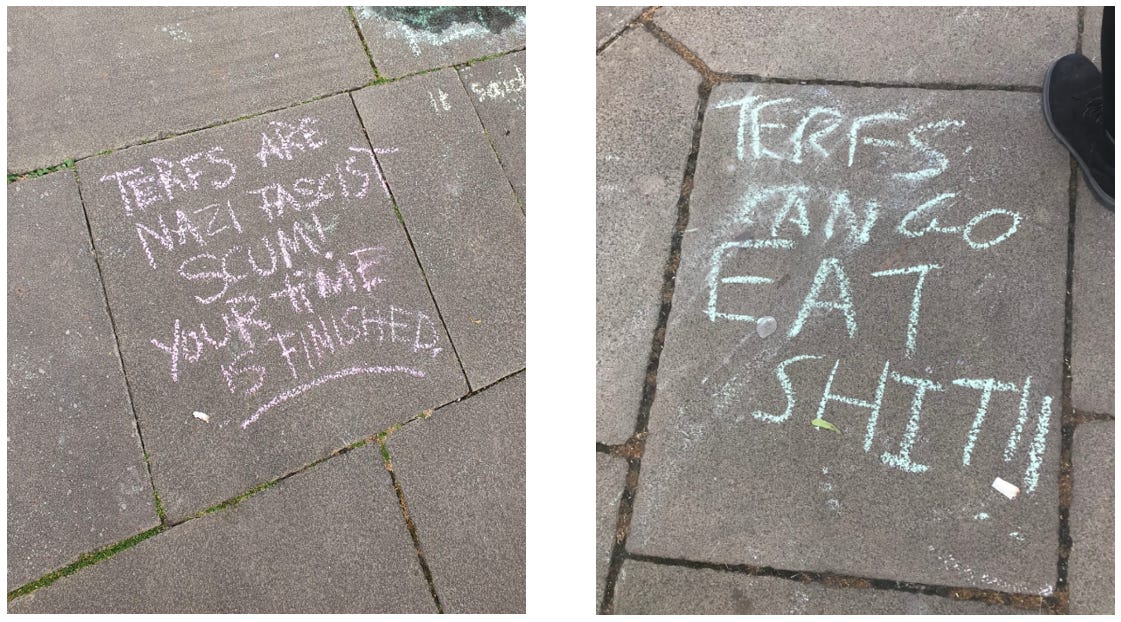 TERFS ARE
NAZI FASCIST
SCUM!
YOUR TIME
IS FINISHED.
It said
TERFS
CAN GO
EAT
SHIT!!